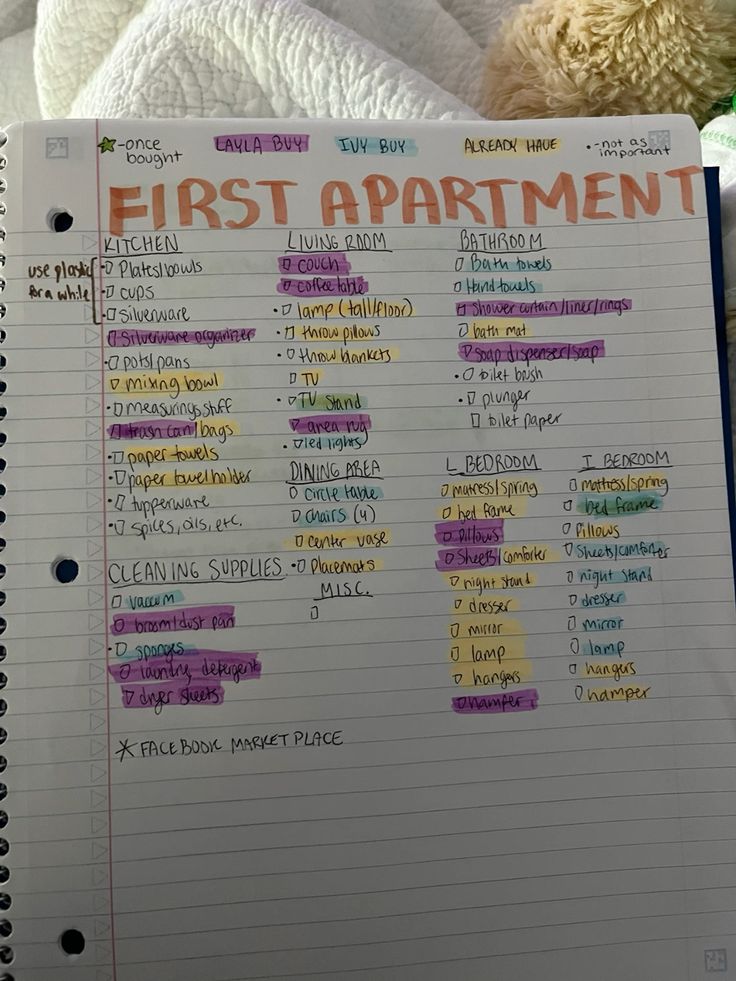 -once bought
LAYLA BUY
IVY BUY
ALREADY HAVE
•-not as important
FIRST APARTMENT
use plastic for a while
KITCHEN
Plates/bowls
cups
Silverware
Silverware organizer
•pots/pans
mixing bowl
•measurings stuff
trash can/bags
•paper towels
•paper towel holder
•tupperware
•spices, oils, etc.
CLEANING SUPPLIES
vaccum
broom/dust pan
•sponges
laundry detergent
dryer sheets
*FACEBOOK MARKET PLACE
LIVING ROOM
couch
coffee table
•lamp (tall/floor)
•throw pillows
•throw blankets
TV
•TV Stand
area rug
•led lights
DINING AREA
circle table
chairs (4)
center vase
•Placemats
MISC.
BATHROOM
Bath towels
Hand towels
Shower curtain/liner/rings
bath mat
soap dispenser/soap
•toilet brush
•plunger
toilet paper
L BEDROOM
matress/spring
bed frame
Pillows
Sheets/comforter
night stand
dresser
mirror
lamp
hangers
hamper
I BEDROOM
mattress/spring
bed frame
Pillows
Sheets/comforter
night stand
dresser
mirror
lamp
hangers
hamper